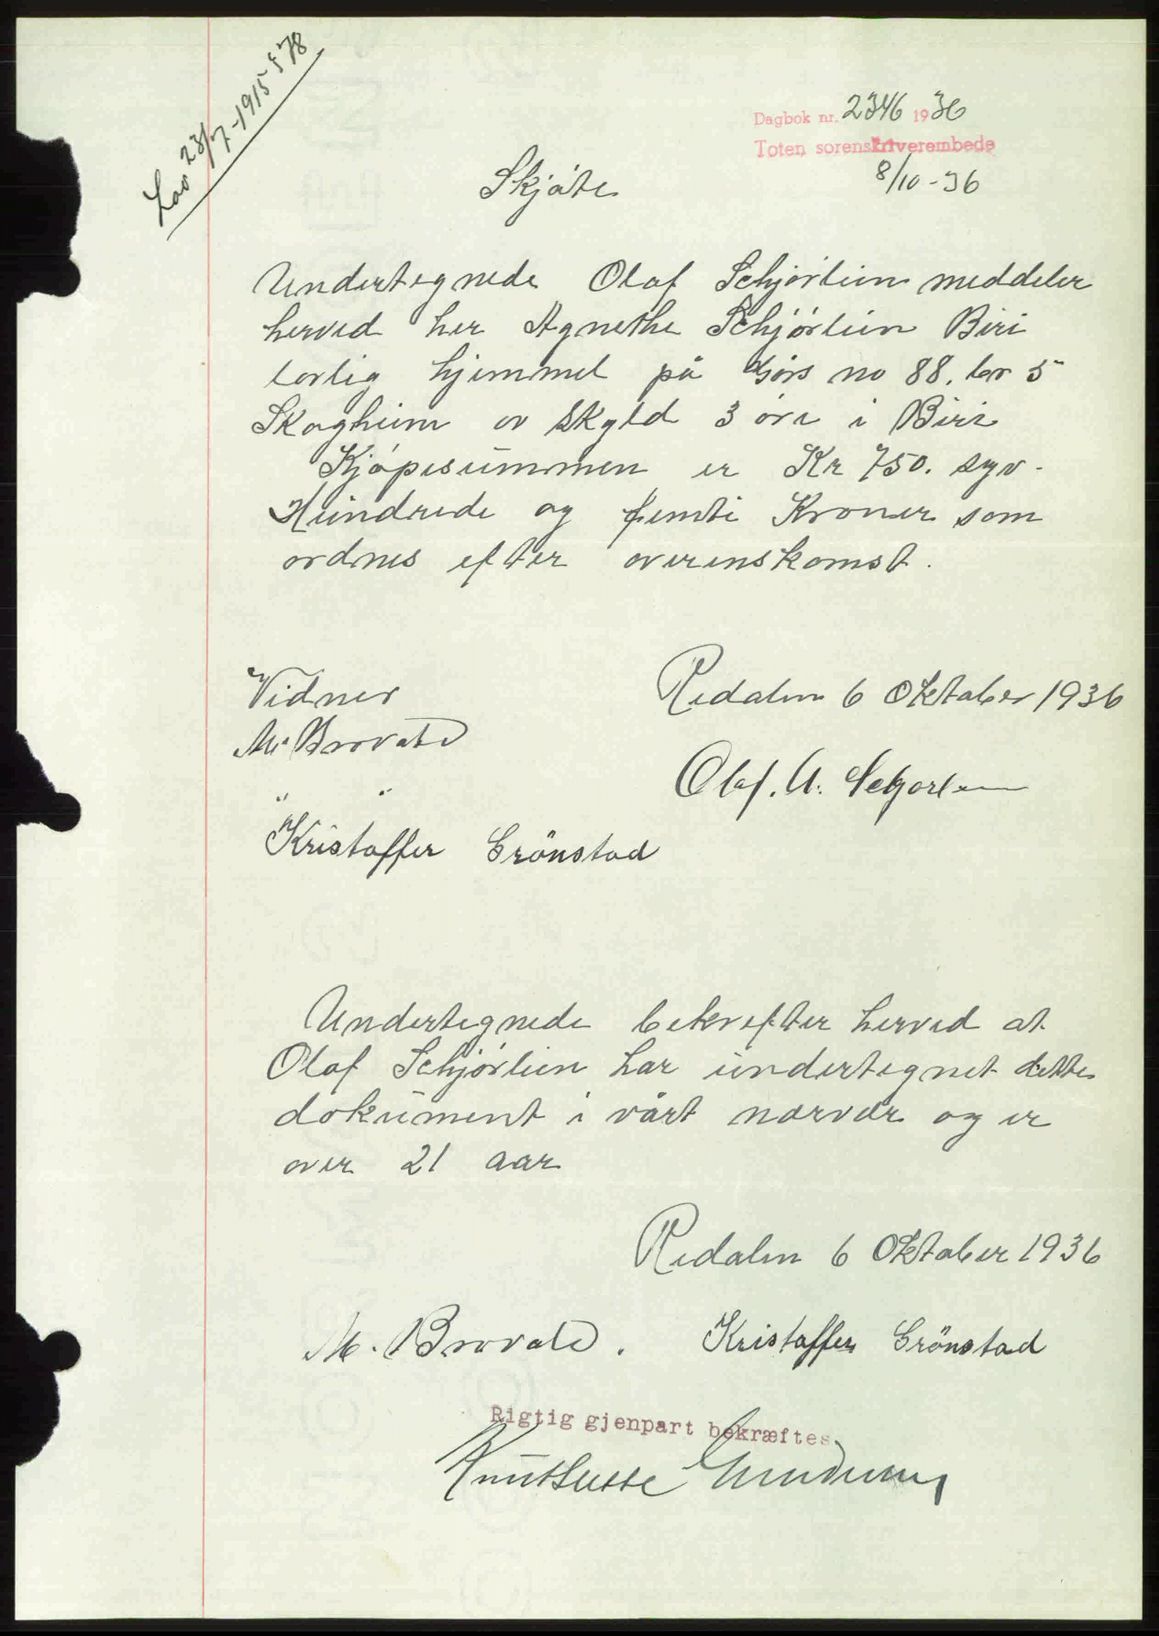 Lov 23/7-1915 § 78
Dagbok nr. 2346 1936
Toten sorenskriverembede
8/10-36
Skjøte
Undertegnede Olaf Schjørlien meddeler
herved her Agnethe Schjørlien Biri
lovlig hjemmel på Gårs no 88. br 5
Skogheim av skyld 3 øre i Biri
Kjøpesummen er Kr 750. syv-
Hundrede og femti Kroner som
ordnes efter overenskomst.
Vidner
M. Brovold
Redalen 6 Oktober 1936
Olaf. A. Schjørlien
" "
Kristoffer Grönstad
Undertegnede bekrefter herved at
Olaf Schjørlien har undertegnet dette
dokument i vårt nærvær og er
over 21 aar
Redalen 6 Oktober 1936
M. Brovold. Kristoffer Grönstad
Rigtig gjenpart bekræftes